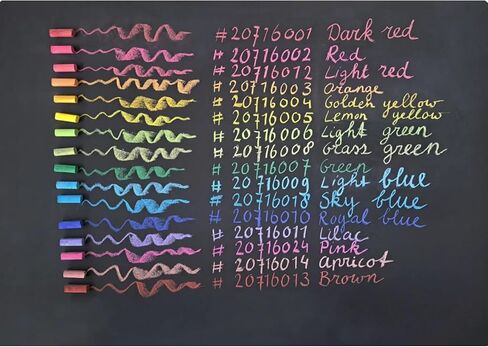 #20716001 Dark red
#20716002 Red
#20716012 Light red
#20716003 Orange
#20716004 Golden yellow
#20716005 Lemon yellow
#20716006 Light green
#20716008 Glass green
#20716007 Green
#20716009 Light blue
#20716018 Sky blue
#20716010 Royal blue
#20716011 Lilac
#20716024 Pink
#20716014 Apricot
#20716013 Brown